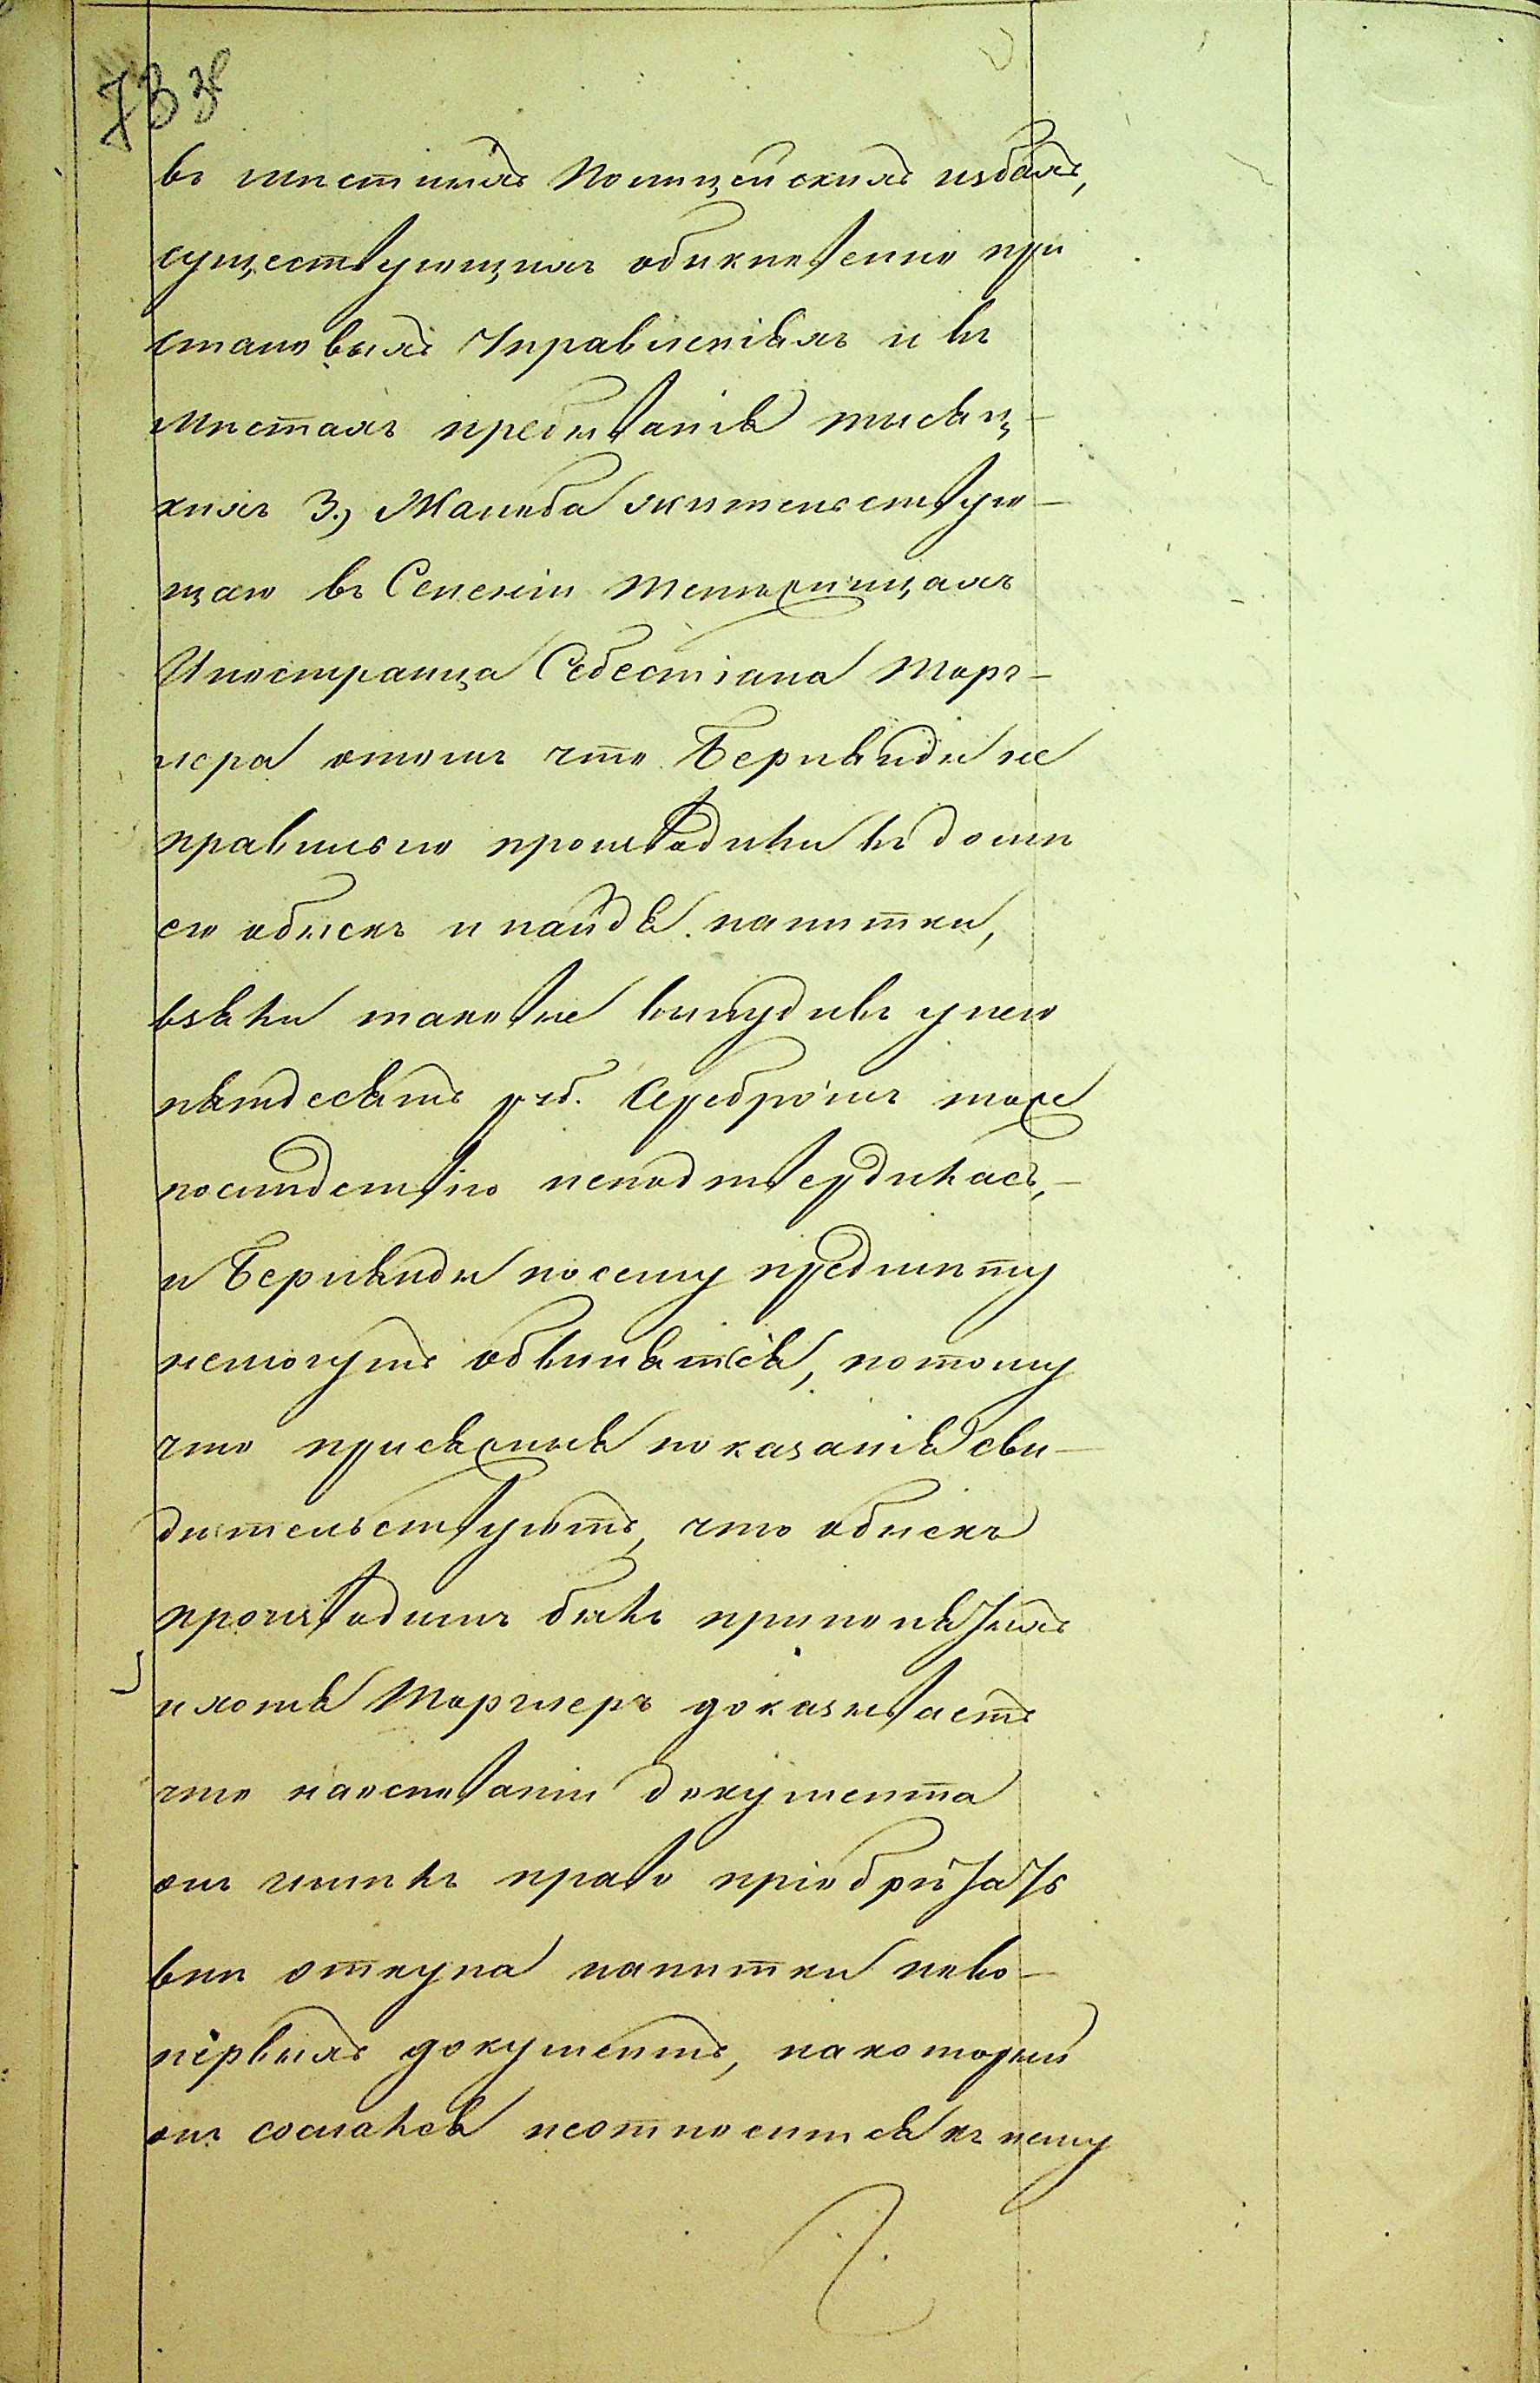 в местныхъ Полицейскихъ избахъ,
существующихъ обыкновенно при
становыхъ Управленіяхъ и въ
мѣстахъ пребыванія тысяц-
кихъ 3.) Жалоба жительствую-
щаго въ Селеніи
Иностранца Себестіана Мор-
лера отомъ что Берлянды не
правильно производили въ домѣ
его обыскъ и найдя напитки,
взяли таковые вынудивъ унего
пятдесятъ руб. Серебромъ тоже
послѣдствію неподтвердилась,
и Берлянды посему предмѣту
немогутъ обвинятся, потому
что присяжныя показанія сви-
дѣтельствуютъ, что обыскъ
производимъ былъ при понятыхъ
и хотя Морглеръ доказываетъ
что наоснованіи документа
онъ имѣлъ право пріобрѣтать
внѣ откупа напитки но во-
первыхъ документъ, на который
онъ сослался неотносится къ нему